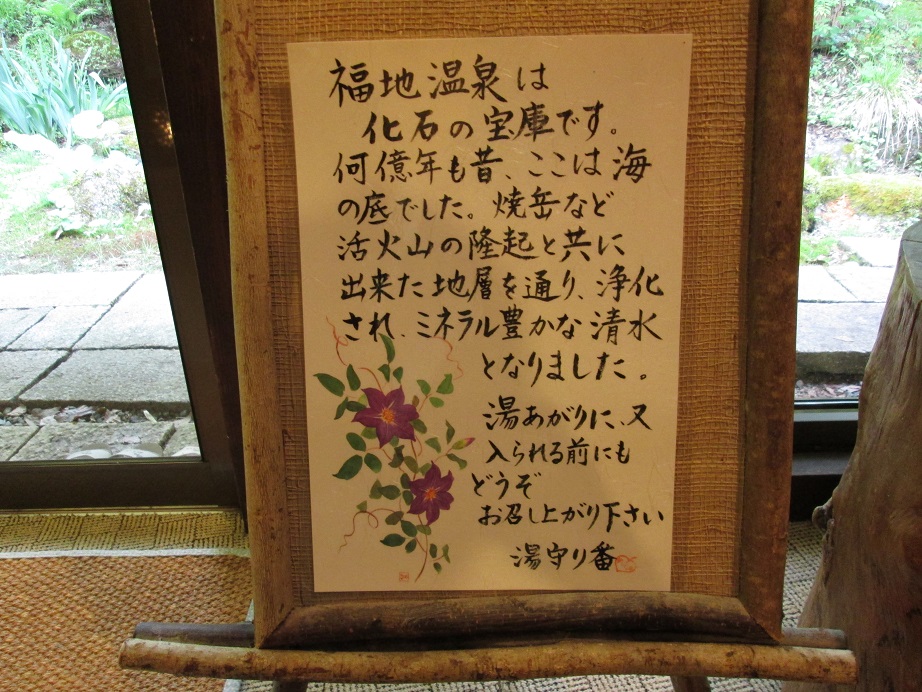 福地温泉は
化石の宝庫です。
何億年も昔、ここは海
の底でした。焼岳など
活火山の隆起と共に
出来た地層を通り、浄化
され、ミネラル豊かな清水
となりました。
湯あがりに、又
入られる前にも
どうぞ
お召し上がり下さい
湯守り番